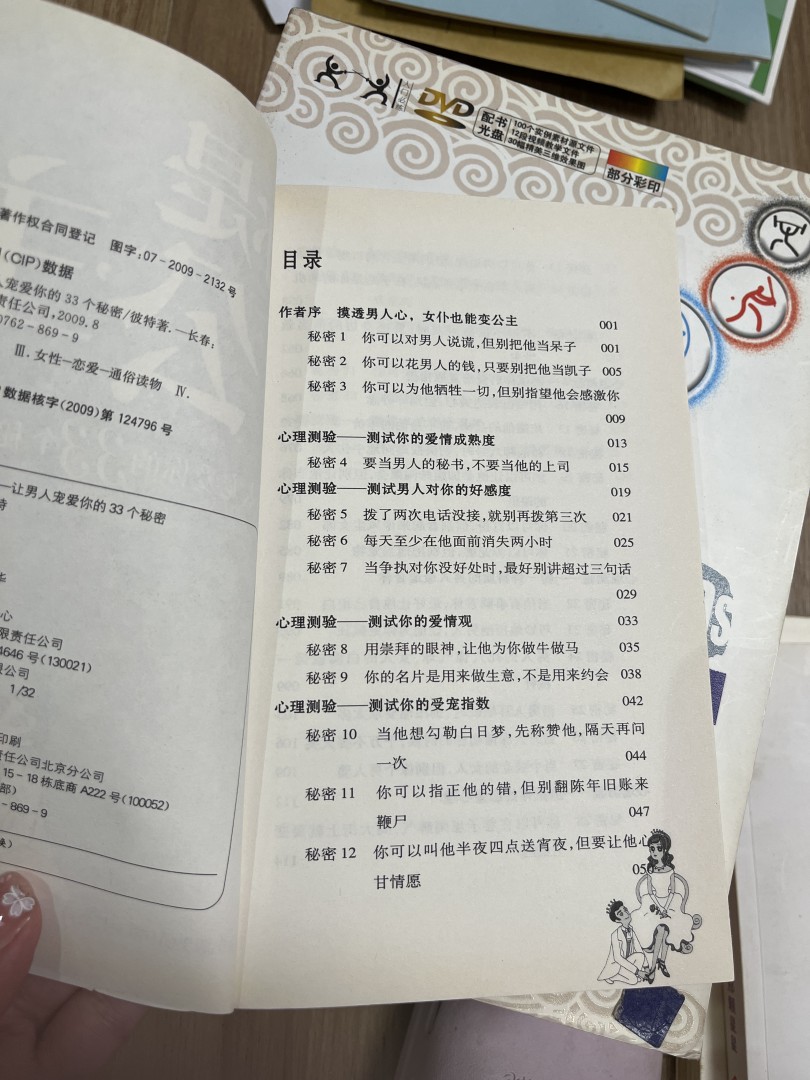 著作权合同登记 图字:07-2009-2132号
(CIP)数据
宠爱你的33个秘密/彼特著.—长春:
责任公司,2009.8
0762-869-9
Ⅲ.女性—恋爱—通俗读物 Ⅳ.
数据核字(2009)第124796号
让男人宠爱你的33个秘密
特
华
心
限责任公司
4646号(130021)
限公司
1/32
印刷
责任公司北京分公司
15-18栋底商A222号(100052)
部)
-869-9
换)
DVD
配书
光盘
100个实例素材源文件
12段视频教学文件
30幅精美三维效果图
部分彩印
目录
作者序 摸透男人心,女仆也能变公主 001
秘密1 你可以对男人说谎,但别把他当呆子 001
秘密2 你可以花男人的钱,只要别把他当凯子 005
秘密3 你可以为他牺牲一切,但别指望他会感激你
009
心理测验——测试你的爱情成熟度 013
秘密4 要当男人的秘书,不要当他的上司 015
心理测验——测试男人对你的好感度 019
秘密5 拨了两次电话没接,就别再拨第三次 021
秘密6 每天至少在他面前消失两小时 025
秘密7 当争执对你没好处时,最好别讲超过三句话
029
心理测验——测试你的爱情观 033
秘密8 用崇拜的眼神,让他为你做牛做马 035
秘密9 你的名片是用来做生意,不是用来约会 038
心理测验——测试你的受宠指数 042
秘密10 当他想勾勒白日梦,先称赞他,隔天再问
一次 044
秘密11 你可以指正他的错,但别翻陈年旧账来
鞭尸 047
秘密12 你可以叫他半夜四点送宵夜,但要让他心
甘情愿 050